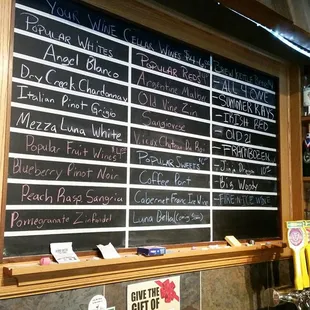 Your Wine Cellar Wines $4-6.00
Popular Whites
Angel Blanco
Dry Creek Chardonnay
Italian Pinot Grigio
Mezza Luna White
Popular Fruit Wines
Blueberry Pinot Noir
Peach Rasp Sangria
Pomegranate Zinfandel
Popular Reds
Argentine Malbec
Old Vine Zin
Sangiovese
Vieux Chateau Du Roi
Popular Sweets
Coffee Port
Cabernet Franc Ice Wine
Luna Bella
- All 4 One
- Summer Rays
- Irish Red
- Old 21
- Big Woody
- Fire n Ice Wine
GIVE THE
GIFT OF